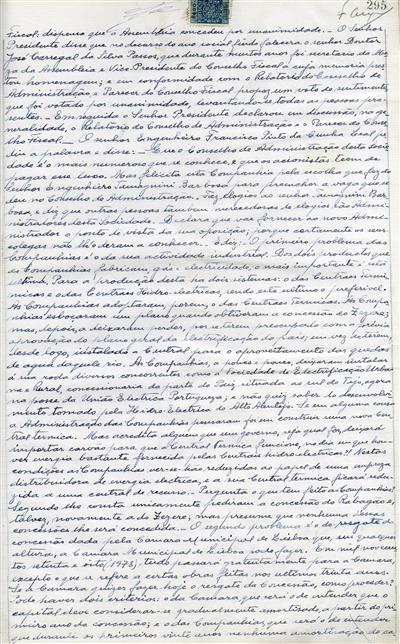 295
Fiscal, dispensa que a Assembleia concedeu por unanimidade. - O Senhor
Presidente disse que no decurso do ano social findo falecera o senhor Doutor
José Carregal da Silva Passos, que durante muitos anos foi secretario da Me-
za da Assembleia e Vice-Presidente do Conselho Fiscal a cuja memoria pres-
tou homenagem; e em conformidade com o Relatorio do Conselho de
Administração e Parecer do Conselho Fiscal propoz um voto de sentimento
que foi votado por unanimidade, levantando-se todas as pessoas pre-
sentes. - Em seguida o Senhor Presidente declarou em discussão, na ge-
neralidade, o Relatorio do Conselho de Administração e o Parecer do Conse-
lho Fiscal. - O senhor Engenheiro Francisco Pinto da Cunha Leal pe-
diu a palavra e disse: - Que o Conselho de Administração desta socie-
dade é o mais numeroso que se conhece, e que os acionistas teem de
pagar esse luxo. Mas felicita esta Companhia pela escolha que fez do
Senhor Engenheiro Tamagnini Barbosa para preencher a vaga que se
deu no Conselho de Administração. Faz elogios ao senhor Tamagnini Bar-
bosa, e diz que outras pessoas tambem merecedoras de elogios são Admi-
nistradores desta sociedade. Declara que vai fornecer ao novo Admi-
nistrador o ponto de vista da sua oposição; porque certamente os seus
colegas não lh'o deram a conhecer. E diz: - O primeiro problema das
Companhias é o da sua actividade industrial. Dos dois productos que
as Companhias fabricam, gás e electricidade, o mais importante é este
ultimo. Para a producção desta ha dois sistemas: o das Centraes Termi-
micas e o das Centraes Hidro-electricas, sendo este ultimo o preferivel.
As Companhias adoptaram, porem, o das Centraes Termicas. As Compa-
nhias esboçaram um plano quando obtiveram a concessão do Zezere;
mas, depois, a deixaram perder, por se terem preocupado com a prévia
aprovação do plano geral da electrificação do paiz, em vez de terem,
desde logo, instalado a Central para o aproveitamento das quedas
de agua daquele rio. As Companhias, a pouco e pouco, deixaram instalar
á sua roda diversos concorrentes como a Sociedade de Electrificação Urba-
na e Rural, concessionaria da parte do Paiz situada ao sul do Tejo, agora
na posse da União Electrica Portugueza; e não quiz saber do desenvolvi-
mento tomado pela Hidro-Electrica do Alto Alentejo. Se em alguma cousa
a Administração das Companhias pensaram foi em construir uma nova Cen-
tral termica. Mas acredita alguem que um governo, seja qual for, deixará
importar carvão para que a Central Termica funcione, no dia em que hou-
ver energia bastante fornecida pelas Centraes hidro electricas?! Nestas
condições as Companhias ver-se-hão reduzidas ao papel de uma empreza
distribuidora de energia electrica, e a sua Central termica ficará redu-
zida a uma central de recurso. - Pergunta o que teem feito as Companhias?
Segundo lhe consta unicamente pediram a concessão do Cabação e,
talvez, novamente a do Zezere; mas presume que nenhuma dessas
concessões lhe será concedida. - O segundo problema é o do resgate da
concessão dada pela Camara Municipal de Lisboa que, em qualquer
altura, a Camara Municipal de Lisboa pode fazer. Em mil novecen-
tos setenta e oito (1978), tudo passará gratuitamente para a Camara,
excepto o que se refere a certas obras feitas nos ultimos trinta anos.
Se a Camara quizer fazer hoje o resgate da concessão, como proceder?
Pode haver dois criterios: o da Camara que será o de entender que o
capital deve considerar-se gradualmente amortizado, a partir do pri-
meiro ano da concessão; e o das Companhias, que será o de entender
que durante os primeiros vinte anos nenhuma amortização do ca-